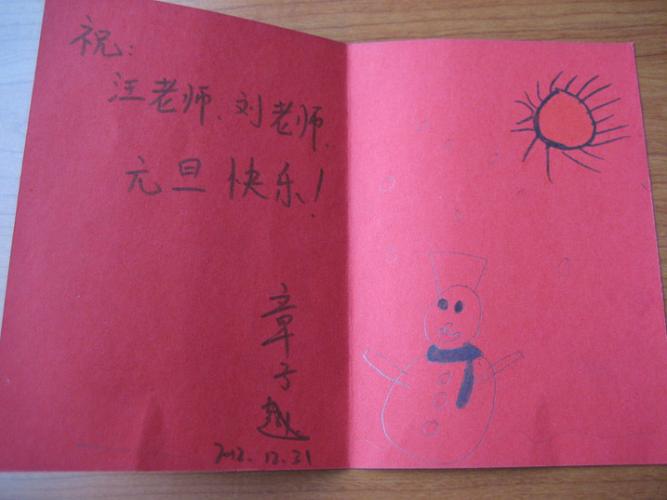 祝：
汪老师、刘老师、
元旦快乐！
章子越
2012.12.31